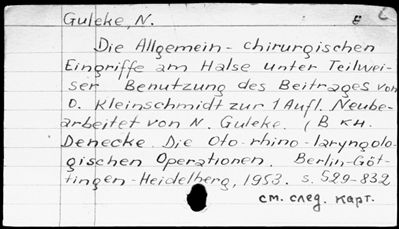 Guleke, N. E C
Die Allgemein-chirurgischen
Eingriffe am Halse unter Teilwei-
ser Benutzung des Beitrages von
O. Kleinschmidt zur 1 Aufl. Neube-
arbeitet von N. Guleke. (В кн.
Denecke. Die Oto-rhino-laryngolo-
gischen Operationen. Berlin-Göt-
tingen-Heidelberg, 1953. s. 529-832
см. след. карт.